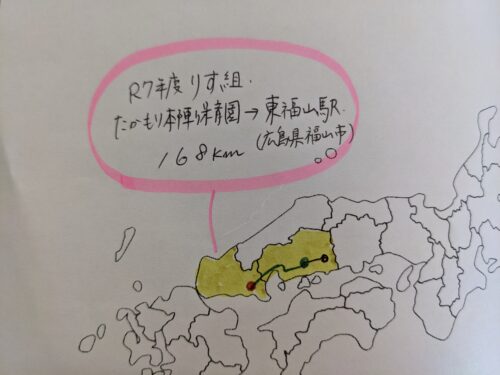 R7年度りす組.
たかもり本陣保育園→東福山駅.
168km(広島県福山市)